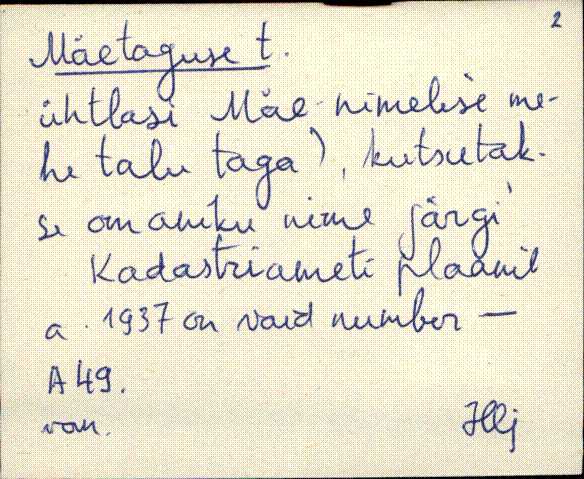 2
Mäetaguse t.
ühtlasi Mäe-nimelise me-
he talu taga), kutsutak-
se omaniku nime järgi
Kadastriameti plaanil
a. 1937 on vaid number —
A 49.
van.